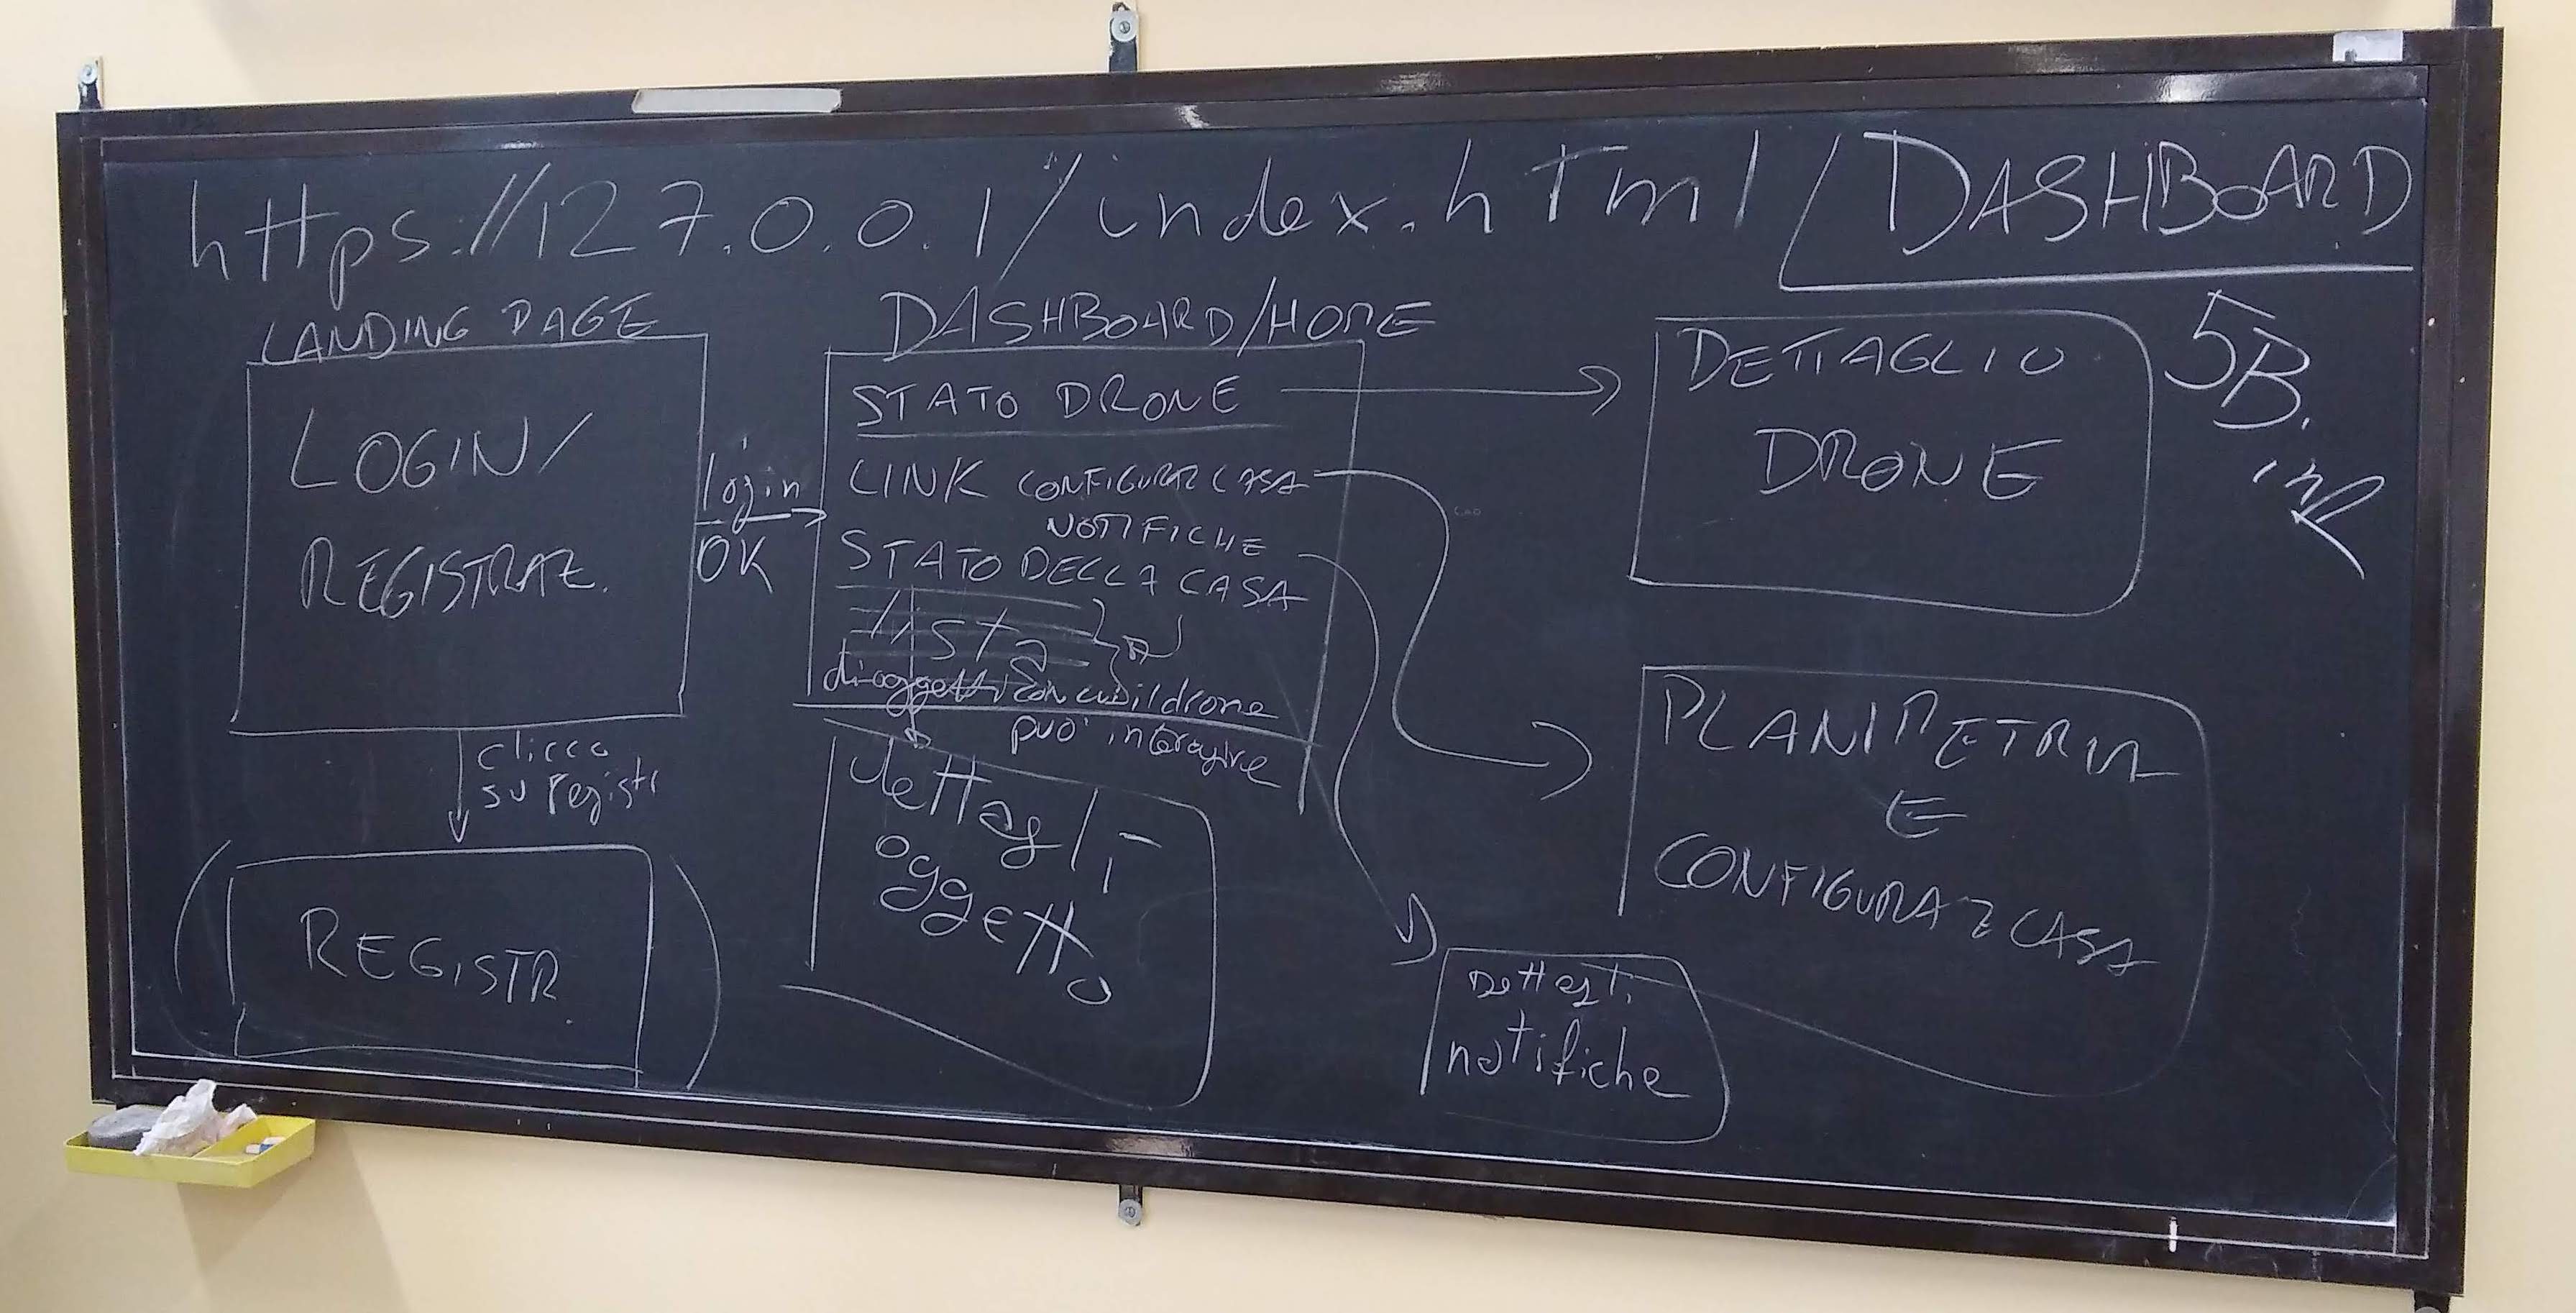 https://127.0.0.1/index.html
DASHBOARD
5B. inf
LANDING PAGE
LOGIN/
REGISTRAZ.
login
OK
clicco
su registr
REGISTR.
DASHBOARD/HOME
STATO DRONE
LINK CONFIGURAZ CASA
NOTIFICHE
STATO DELLA CASA
lista
di oggetti con cui il drone
può interagire
dettagli
oggetto
DETTAGLIO
DRONE
PLANIMETRIA
E
CONFIGURAZ CASA
Dettagli
notifiche